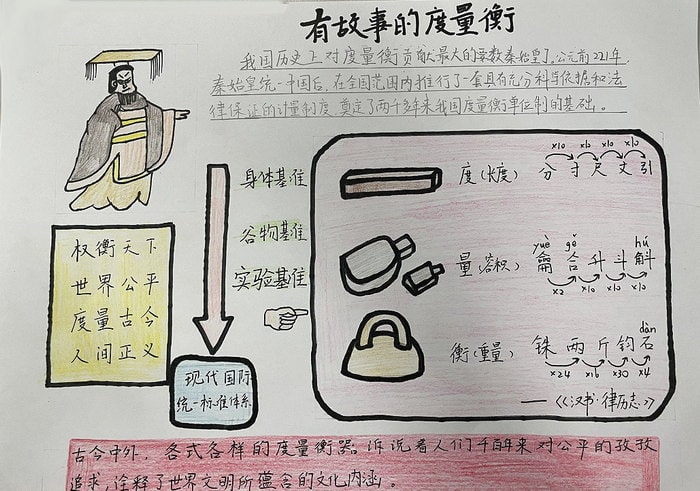 有故事的度量衡
我国历史上对度量衡贡献最大的要数秦始皇了。公元前221年,
秦始皇统一中国后,在全国范围内推行了一套具有充分科学依据和法
律保证的计量制度,奠定了两千多年来我国度量衡单位制的基础。
权衡天下
世界公平
度量古今
人间正义
身体基准
谷物基准
实验基准
现代国际
统一标准体系
x10 x10 x10 x10
度(长度) 分 寸 尺 丈 引
yuè gě hú
量(容积) 龠 合 升 斗 斛
x2 x10 x10 x10
dàn
衡(重量) 铢 两 斤 钧 石
x24 x16 x30 x4
——《汉书·律历志》
古今中外,各式各样的度量衡器,诉说着人们千百年来对公平的孜孜
追求,诠释了世界文明所蕴含的文化内涵。